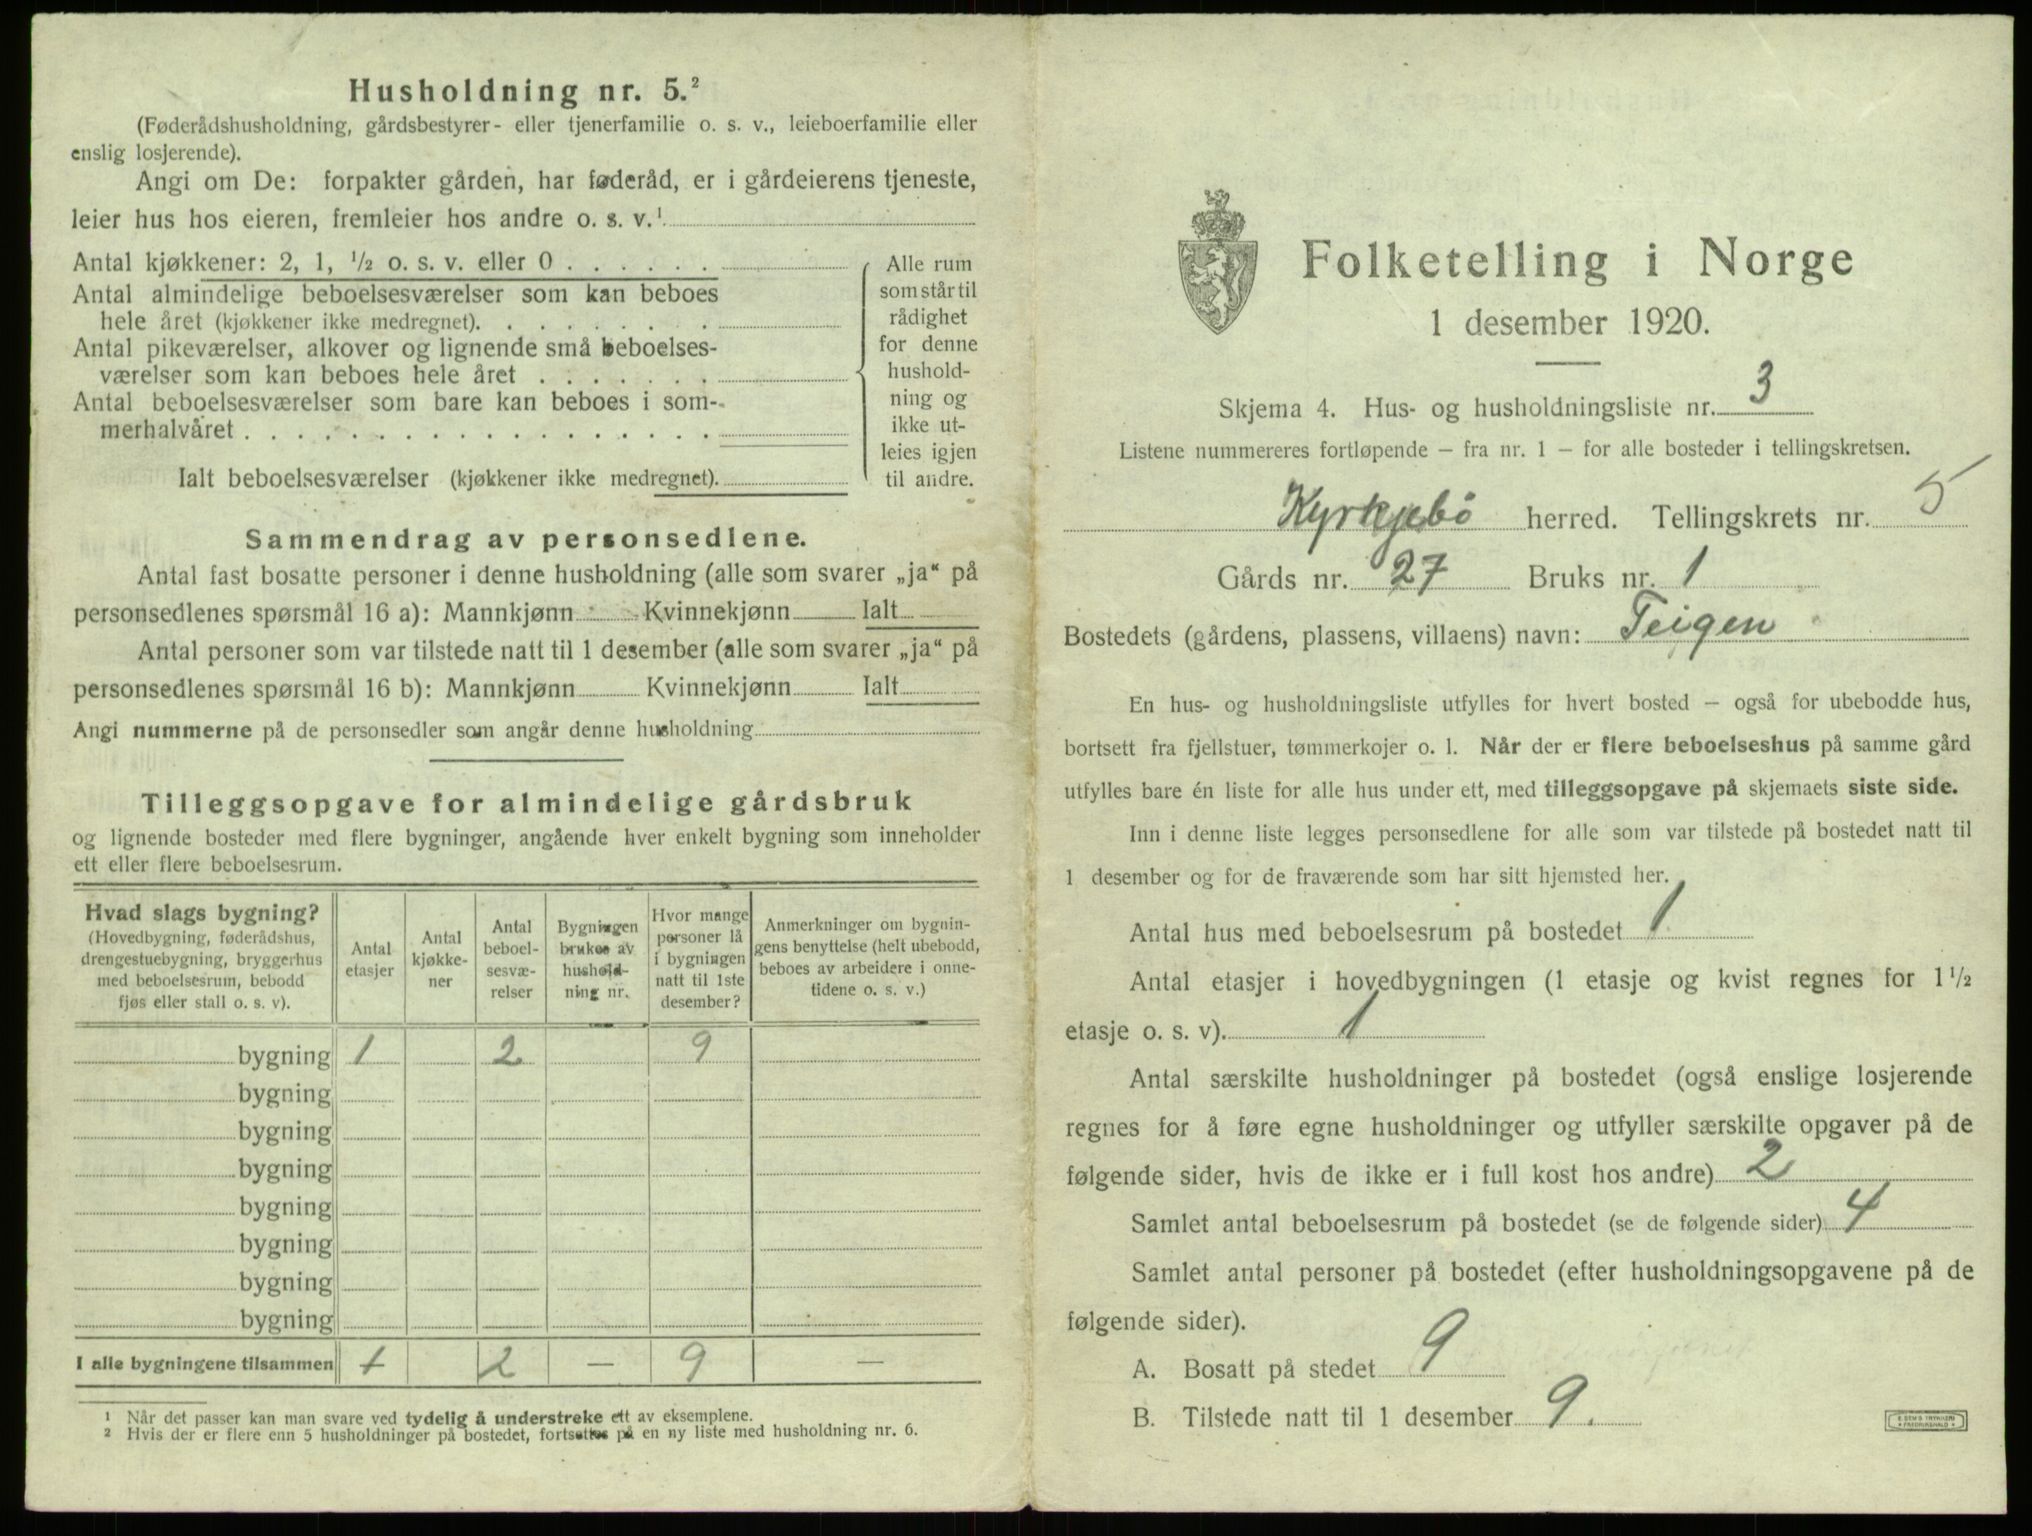 Husholdning nr. 5.²
(Føderådshusholdning, gårdsbestyrer- eller tjenerfamilie o. s. v., leieboerfamilie eller
enslig losjerende).
Angi om De: forpakter gården, har føderåd, er i gårdeierens tjeneste,
leier hus hos eieren, fremleier hos andre o. s. v.¹
Antal kjøkkener: 2, 1, ½ o. s. v. eller 0 . . . . . .
Antal almindelige beboelsesværelser som kan beboes
hele året (kjøkkener ikke medregnet). . . . . . . . .
Antal pikeværelser, alkover og lignende små beboelses-
værelser som kan beboes hele året . . . . . . .
Antal beboelsesværelser som bare kan beboes i som-
merhalvåret . . . . . . . . . . . . . . . . . .
Ialt beboelsesværelser (kjøkkener ikke medregnet).
Alle rum
som står til
rådighet
for denne
hushold-
ning og
ikke ut-
leies igjen
til andre.
Sammendrag av personsedlene.
Antal fast bosatte personer i denne husholdning (alle som svarer „ja“ på
personsedlenes spørsmål 16 a): Mannkjønn Kvinnekjønn Ialt
Antal personer som var tilstede natt til 1 desember (alle som svarer „ja“ på
personsedlenes spørsmål 16 b): Mannkjønn Kvinnekjønn Ialt
Angi nummerne på de personsedler som angår denne husholdning
Tilleggsopgave for almindelige gårdsbruk
og lignende bosteder med flere bygninger, angående hver enkelt bygning som inneholder
ett eller flere beboelsesrum.
Hvad slags bygning?
(Hovedbygning, føderådshus,
drengestuebygning, bryggerhus
med beboelsesrum, bebodd
fjøs eller stall o. s. v).
Antal
etasjer
Antal
kjøkke-
ner
Antal
beboel-
sesvæ-
relser
Bygningen
brukes av
hushold-
ning nr.
Hvor mange
personer lå
i bygningen
natt til 1ste
desember?
Anmerkninger om bygnin-
gens benyttelse (helt ubebodd,
beboes av arbeidere i onne-
tidene o. s. v.)
bygning 1 2 9
bygning
bygning
bygning
bygning
bygning
bygning
bygning
I alle bygningene tilsammen 1 2 — 9 —
¹ Når det passer kan man svare ved tydelig å understreke ett av eksemplene.
² Hvis der er flere enn 5 husholdninger på bostedet, fortsettes på en ny liste med husholdning nr. 6.
Folketelling i Norge
1 desember 1920.
Skjema 4. Hus- og husholdningsliste nr. 3
Listene nummereres fortløpende — fra nr. 1 — for alle bosteder i tellingskretsen.
Kyrkjebö herred. Tellingskrets nr. 5
Gårds nr. 27 Bruks nr. 1
Bostedets (gårdens, plassens, villaens) navn: Teigen
En hus- og husholdningsliste utfylles for hvert bosted — også for ubebodde hus,
bortsett fra fjellstuer, tømmerkojer o. l. Når der er flere beboelseshus på samme gård
utfylles bare én liste for alle hus under ett, med tilleggsopgave på skjemaets siste side.
Inn i denne liste legges personsedlene for alle som var tilstede på bostedet natt til
1 desember og for de fraværende som har sitt hjemsted her.
Antal hus med beboelsesrum på bostedet 1
Antal etasjer i hovedbygningen (1 etasje og kvist regnes for 1½
etasje o. s. v). 1
Antal særskilte husholdninger på bostedet (også enslige losjerende
regnes for å føre egne husholdninger og utfyller særskilte opgaver på de
følgende sider, hvis de ikke er i full kost hos andre) 2
Samlet antal beboelsesrum på bostedet (se de følgende sider) 4
Samlet antal personer på bostedet (efter husholdningsopgavene på de
følgende sider).
A. Bosatt på stedet 9
B. Tilstede natt til 1 desember 9.